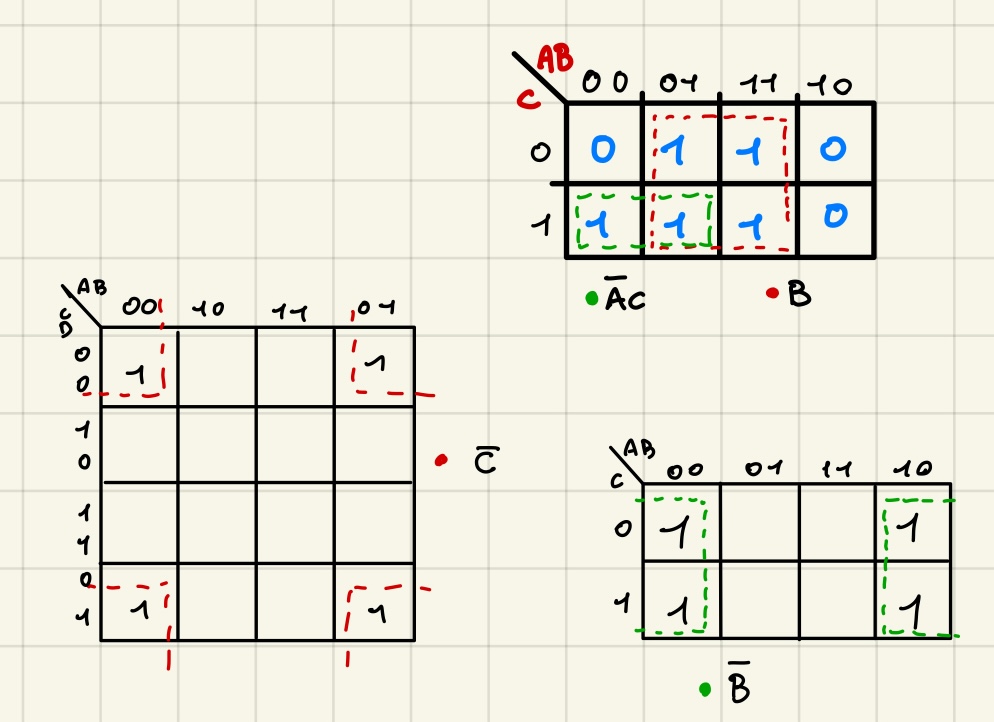 AB
C
00 01 11 10
0 0 1 1 0
1 1 1 1 0
A̅C B
AB
CD
00 10 11 01
00 1 1
10
11
01 1 1
C̅
AB
C
00 01 11 10
0 1 1
1 1 1
B̅